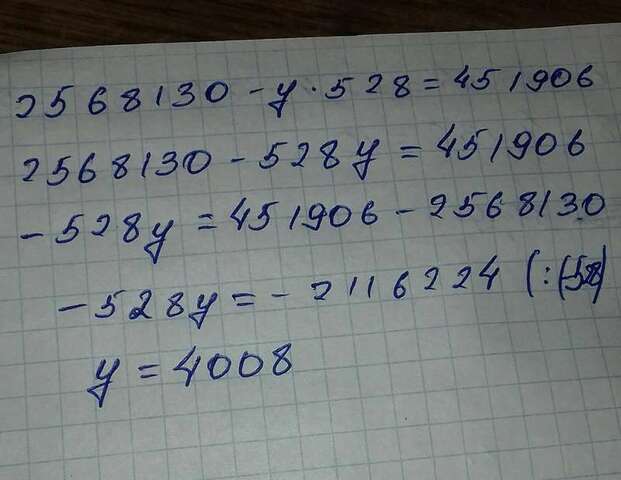 2568130 - y · 528 = 451906
2568130 - 528y = 451906
- 528y = 451906 - 2568130
- 528y = - 2116224 (:(-528)
y = 4008